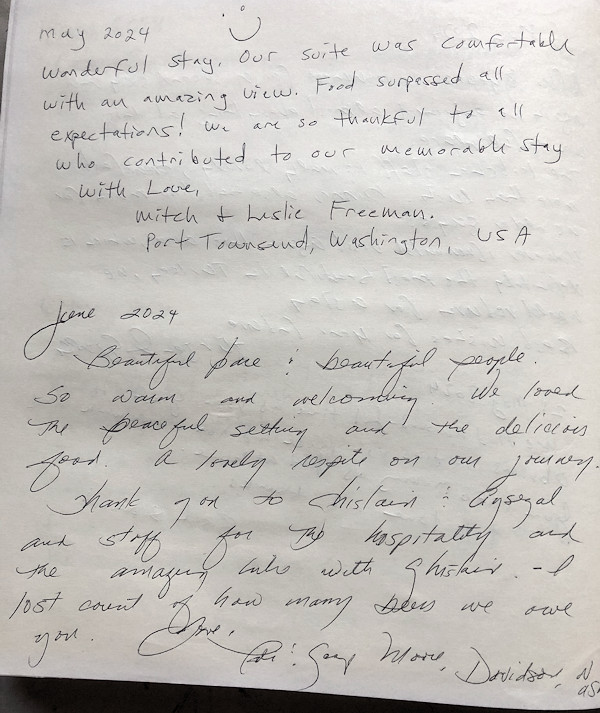 May 2024
Wonderful stay. Our suite was comfortable
with an amazing view. Food surpassed all
expectations! We are so thankful to all
who contributed to our memorable stay
With Love,
Mitch & Leslie Freeman.
Port Townsend, Washington, USA
June 2024
Beautiful place & beautiful people.
So warm and welcoming. We loved
the peaceful setting and the delicious
food. A lovely respite on our journey.
Thank you to Ghislain & Aysegal
and staff for the hospitality and
the amazing with Ghislain. - I
lost count of how many beers we owe
you. Love,
& Gary Moore, Davidson, N